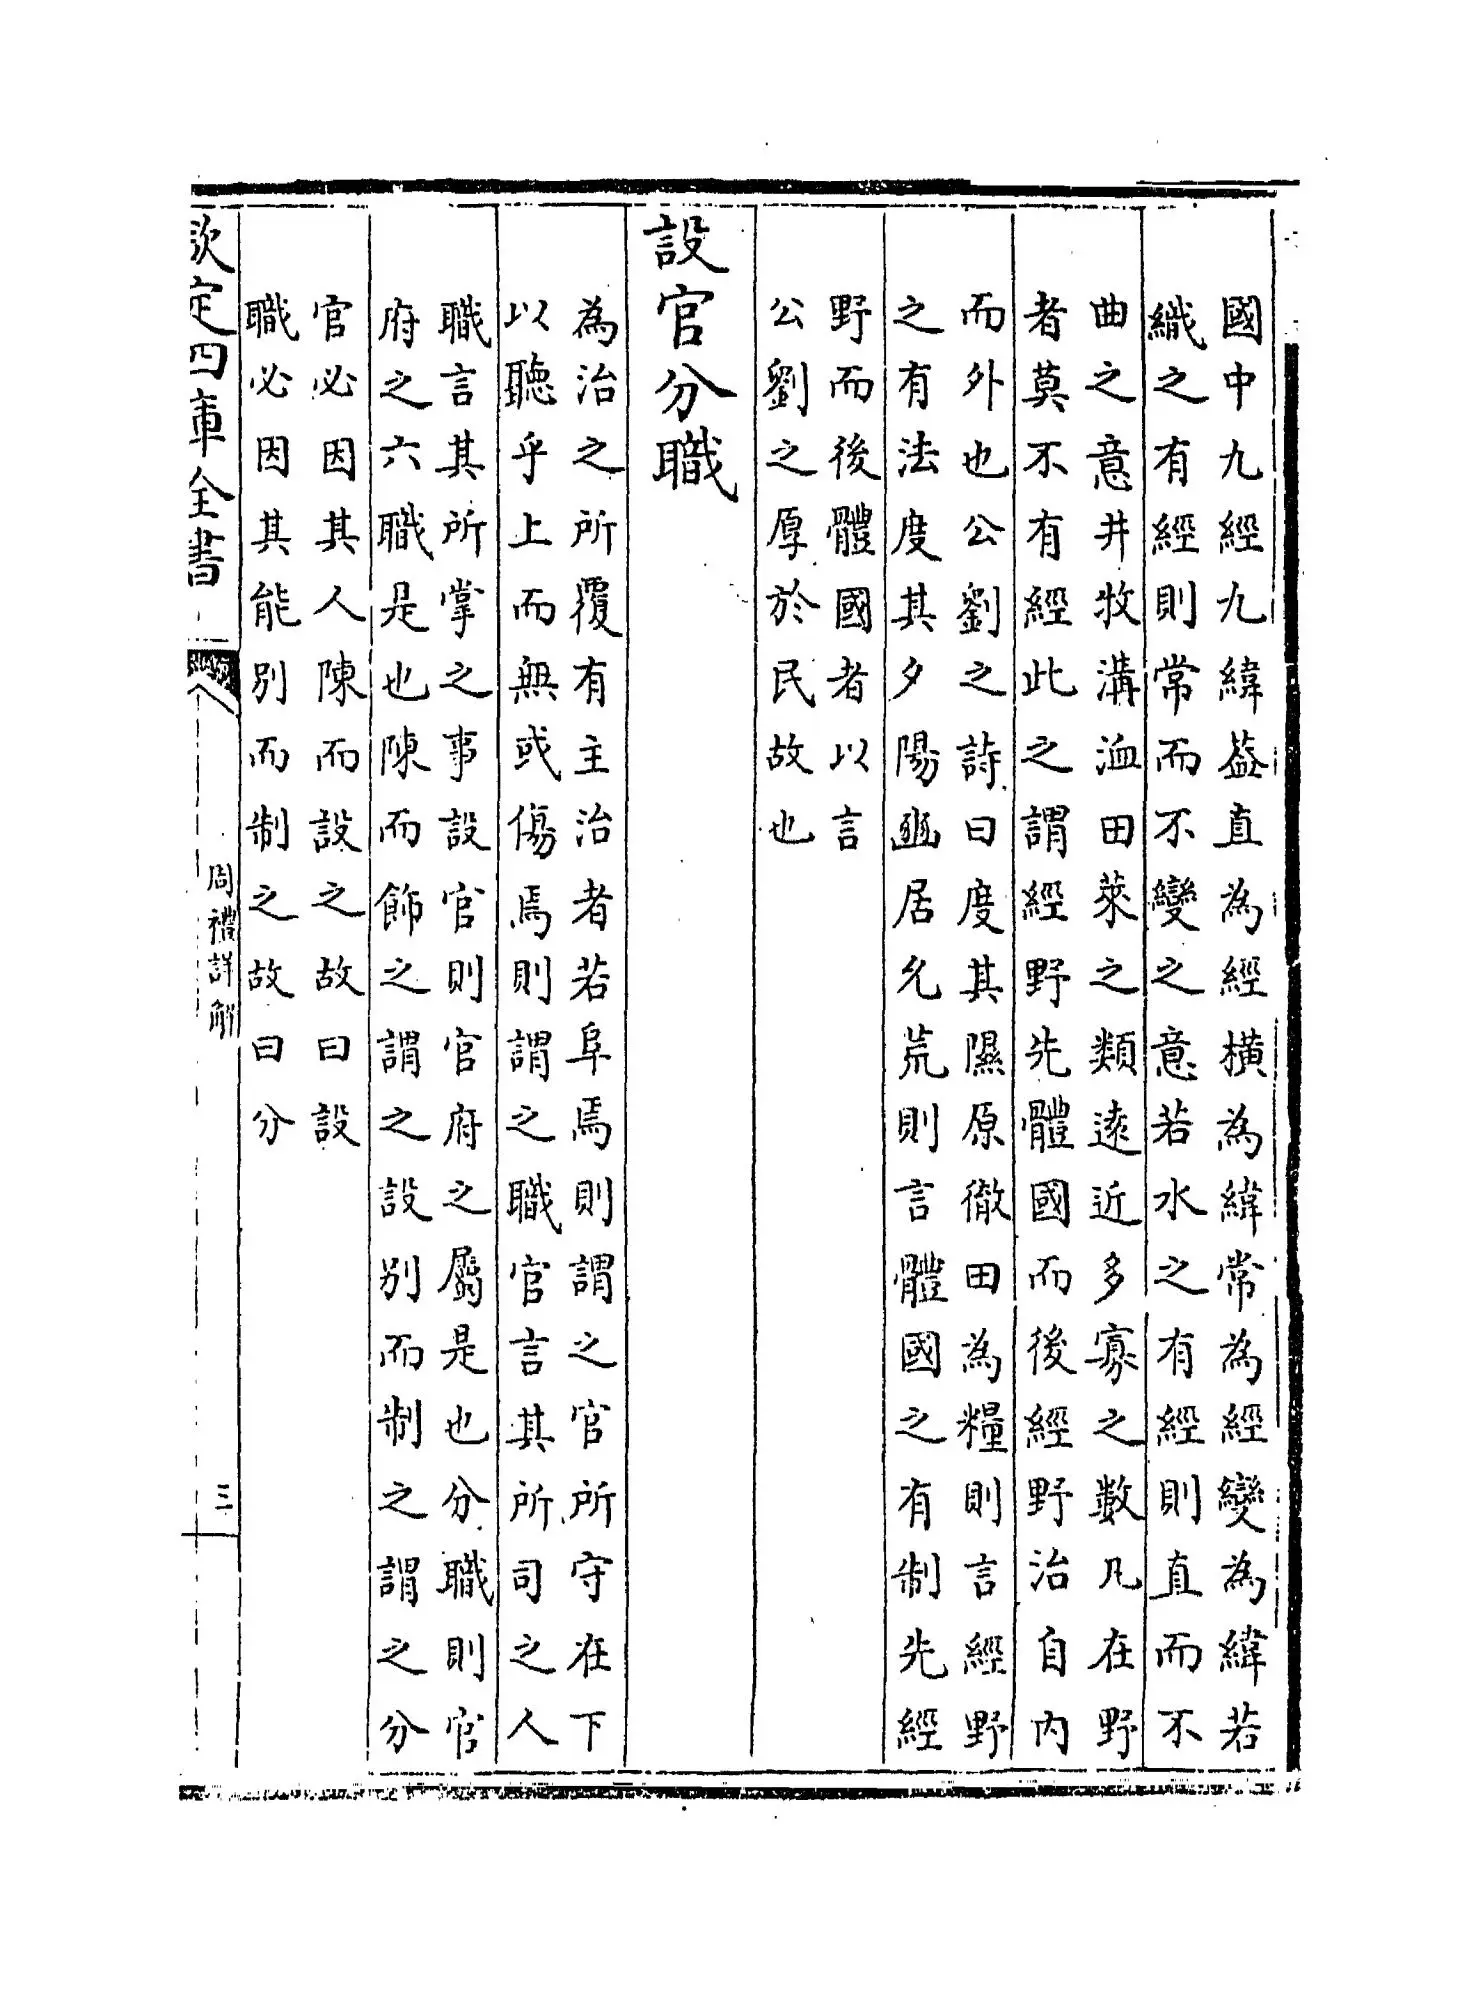 國中九經九緯葢直為經横為緯常為經變為緯若
織之有經則常而不變之意若水之有經則直而不
曲之意井牧溝洫田萊之類逺近多寡之數凡在野
者莫不有經此之謂經野先體國而後經野治自内
而外也公劉之詩曰度其隰原徹田為糧則言經野
之有法度其夕陽豳居允荒則言體國之有制先經
野而後體國者以言
公劉之厚於民故也
設官分職
為治之所覆有主治者若阜焉則謂之官所守在下
以聽乎上而無或傷焉則謂之職官言其所司之人
職言其所掌之事設官則官府之屬是也分職則官
府之六職是也陳而飾之謂之設别而制之謂之分
官必因其人陳而設之故曰設
職必因其能别而制之故曰分
欽定四庫全書
周禮詳解
三